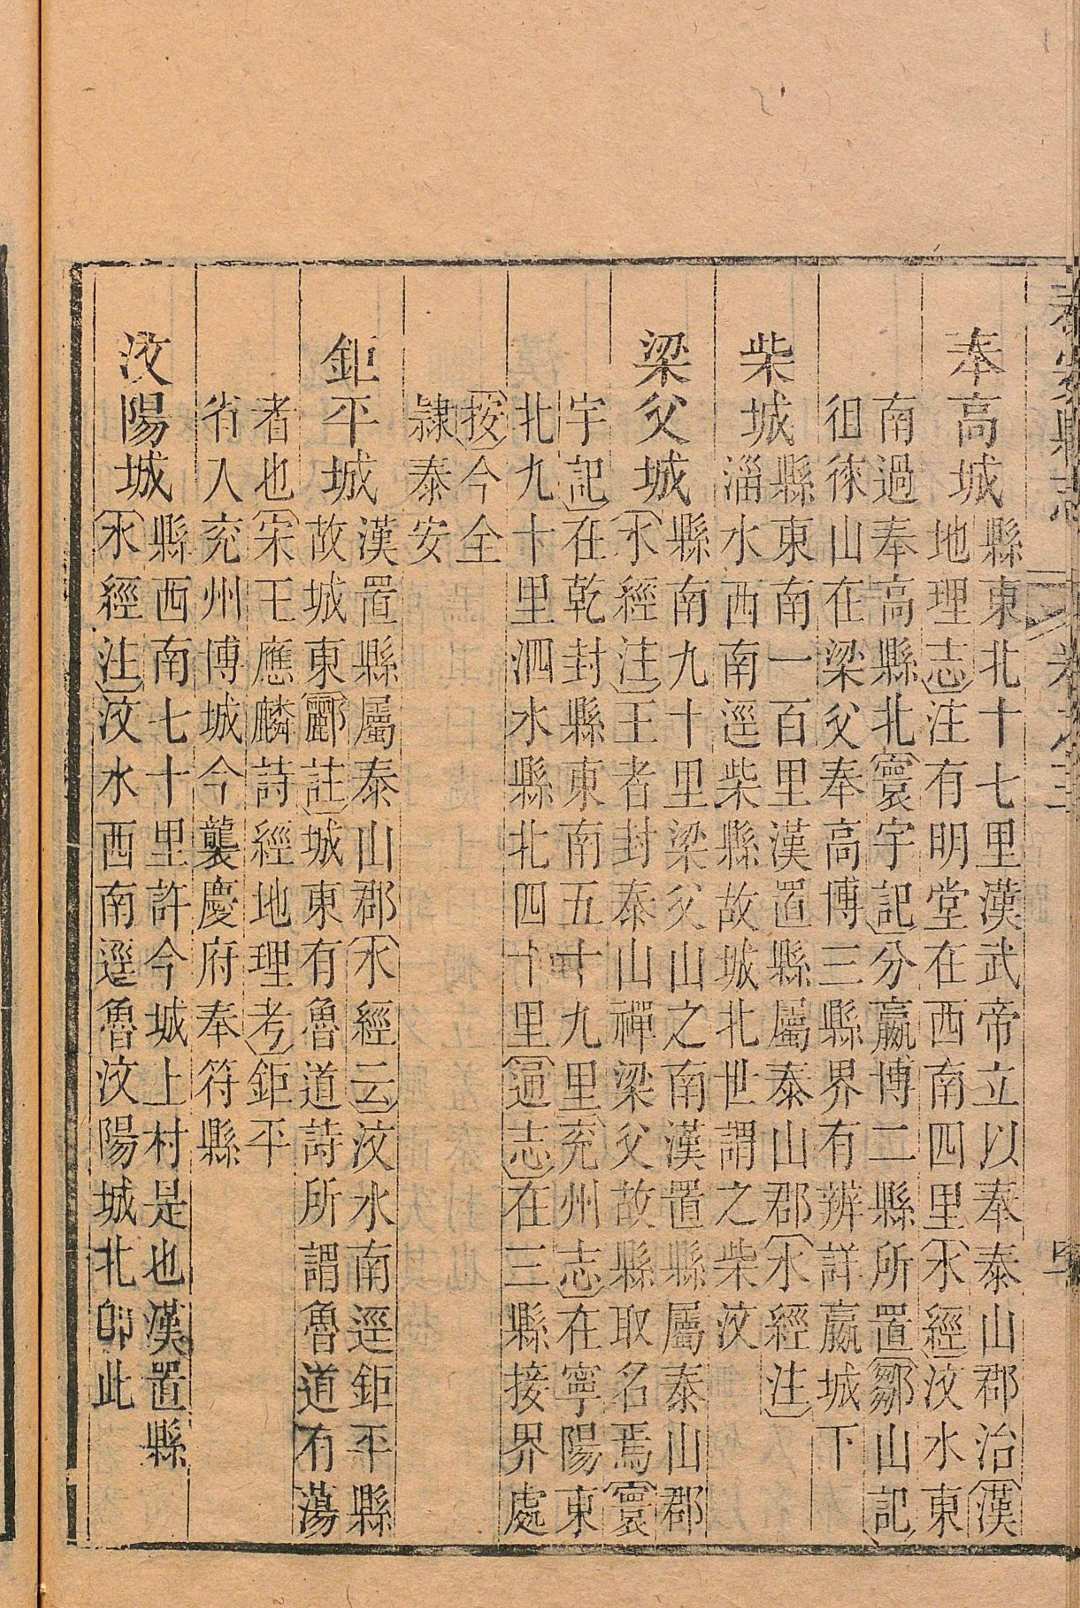 泰安縣志 卷之三
奉高城
縣東北十七里漢武帝立以奉泰山郡治〔漢
地理志〕注有明堂在西南四里〔水經〕汶水東
南過奉高縣北〔寰宇記〕分嬴博二縣所置〔鄒山記〕
徂徠山在梁父奉高博三縣界有辨詳嬴城下
柴城
縣東南一百里漢置縣屬泰山郡〔水經注〕
淄水西南逕柴縣故城北世謂之柴汶
梁父城
縣南九十里梁父山之南漢置縣屬泰山郡
〔水經注〕王者封泰山禪梁父故縣取名焉〔寰
宇記〕在乾封縣東南五十九里〔兖州志〕在寧陽東
北九十里泗水縣北四十里〔通志〕在三縣接界處
〔按〕今全
隸泰安
鉅平城
漢置縣屬泰山郡〔水經云〕汶水南逕鉅平縣
故城東〔酈註〕城東有魯道詩所謂魯道有蕩
者也〔宋王應麟詩經地理考〕鉅平
省入兖州博城今襲慶府奉符縣
汶陽城
縣西南七十里許今城上村是也漢置縣
〔水經注〕汶水西南逕魯汶陽城北卽此